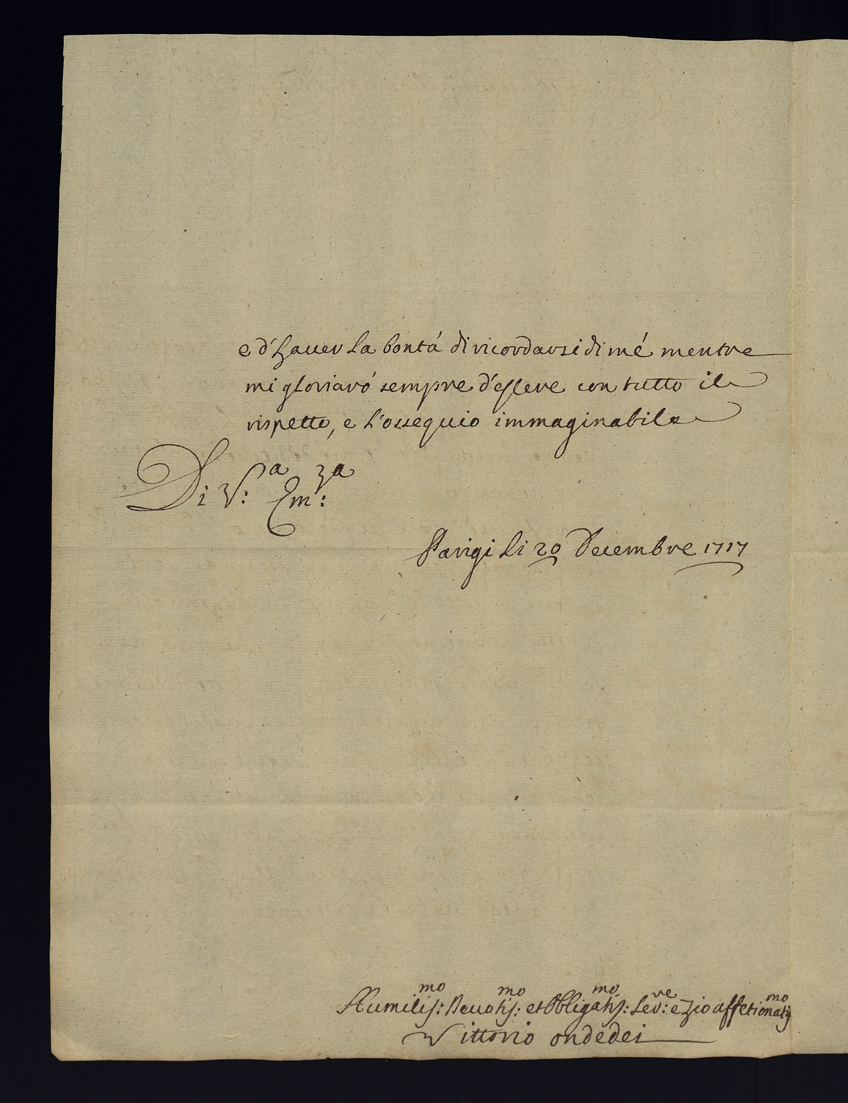 e d'hauer la bontá di ricordarsi di mé mentre
mi gloriaró sempre d'essere con tutto il
rispetto, e l'ossequio immaginabile
Di V:ª Em:zª
Parigi li 20 Decembre 1717
Humilis:mo Deuotis:mo et Obligatis:mo Ser:re e Zio affetionatis:mo
Vittorio ondedei